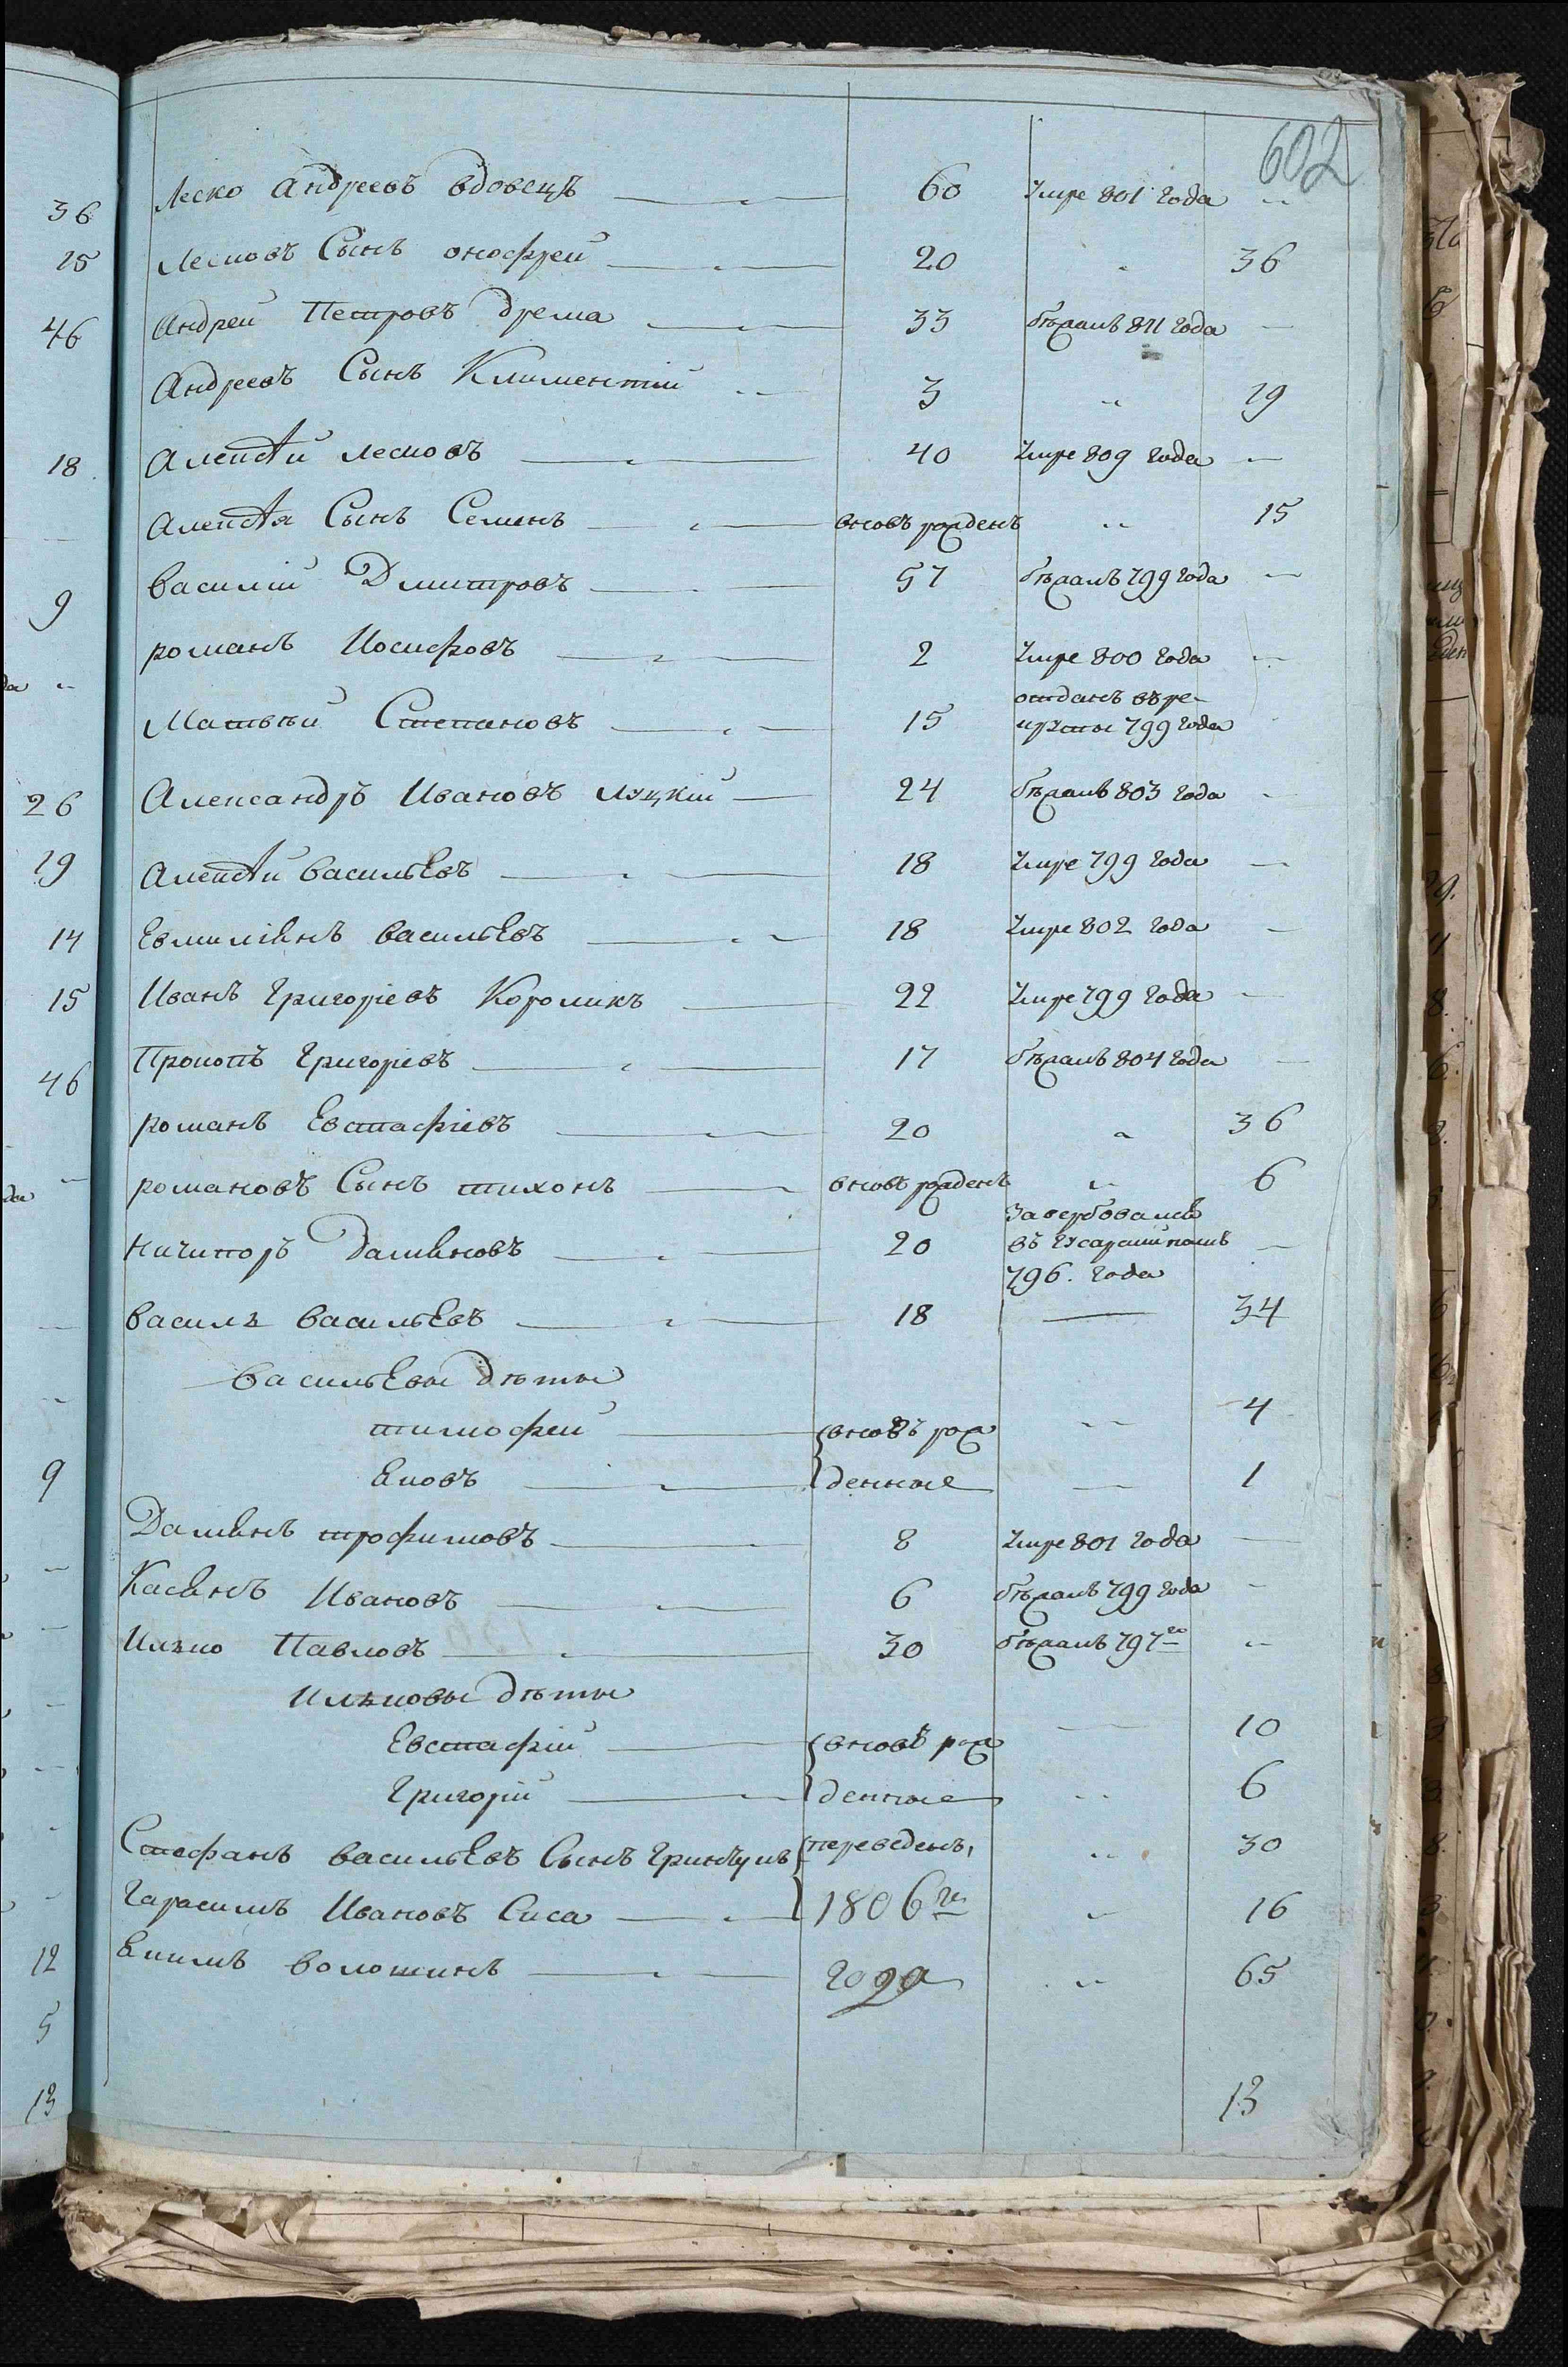 602
Леско Андреевъ вдовецъ 60 Умре 801 года
Лесковъ Сынъ онофрей 20 36
Андрей Петровъ дрема 33 бежалъ 811 года
Андреевъ Сынъ Климентій 3 19
Алексѣй лесковъ 40 Умре 809 года
Алексѣя Сынъ Семенъ вновь рожденъ 15
Василій Дмитровъ 57 бѣжалъ 799 года
романъ Иосифовъ 2 Умре 800 года
отданъ въ ре-
Матвѣй Степановъ 15 круты 799 года
Александръ Ивановъ луцкій 24 бѣжалъ 803 года
Алексѣй васильевъ 18 Умре 799 года
Евмиліянъ васильевъ 18 Умре 802 года
Иванъ Григоріевъ Короликъ 22 Умре 799 года
Прокопъ Григоріевъ 17 бѣжалъ 804 года
романъ Евстафіевъ 20 36
романовъ Сынъ тихонъ вновь рожденъ 6
завербовался
Ничипоръ Дамяновъ 20 въ гусарскій полкъ
796. года
василь васильевъ 18 34
васильевы дѣти
тимофей вновь рож 4
яковъ денные 1
Дамянъ трофимовъ 8 Умре 801 года
Касянъ Ивановъ 6 бѣжалъ 799 года
Илько Павловъ 30 бѣжалъ 797го
Ильковы дѣти
Евстафій вновь рож 10
Григорій денные 6
Стефанъ васильевъ Сынъ переведенъ, 30
Гарасимъ Ивановъ Сиса 1806го 16
якимъ волошинъ года 65
13
36
25
46
18
9
26
19
14
15
46
9
12
5
13